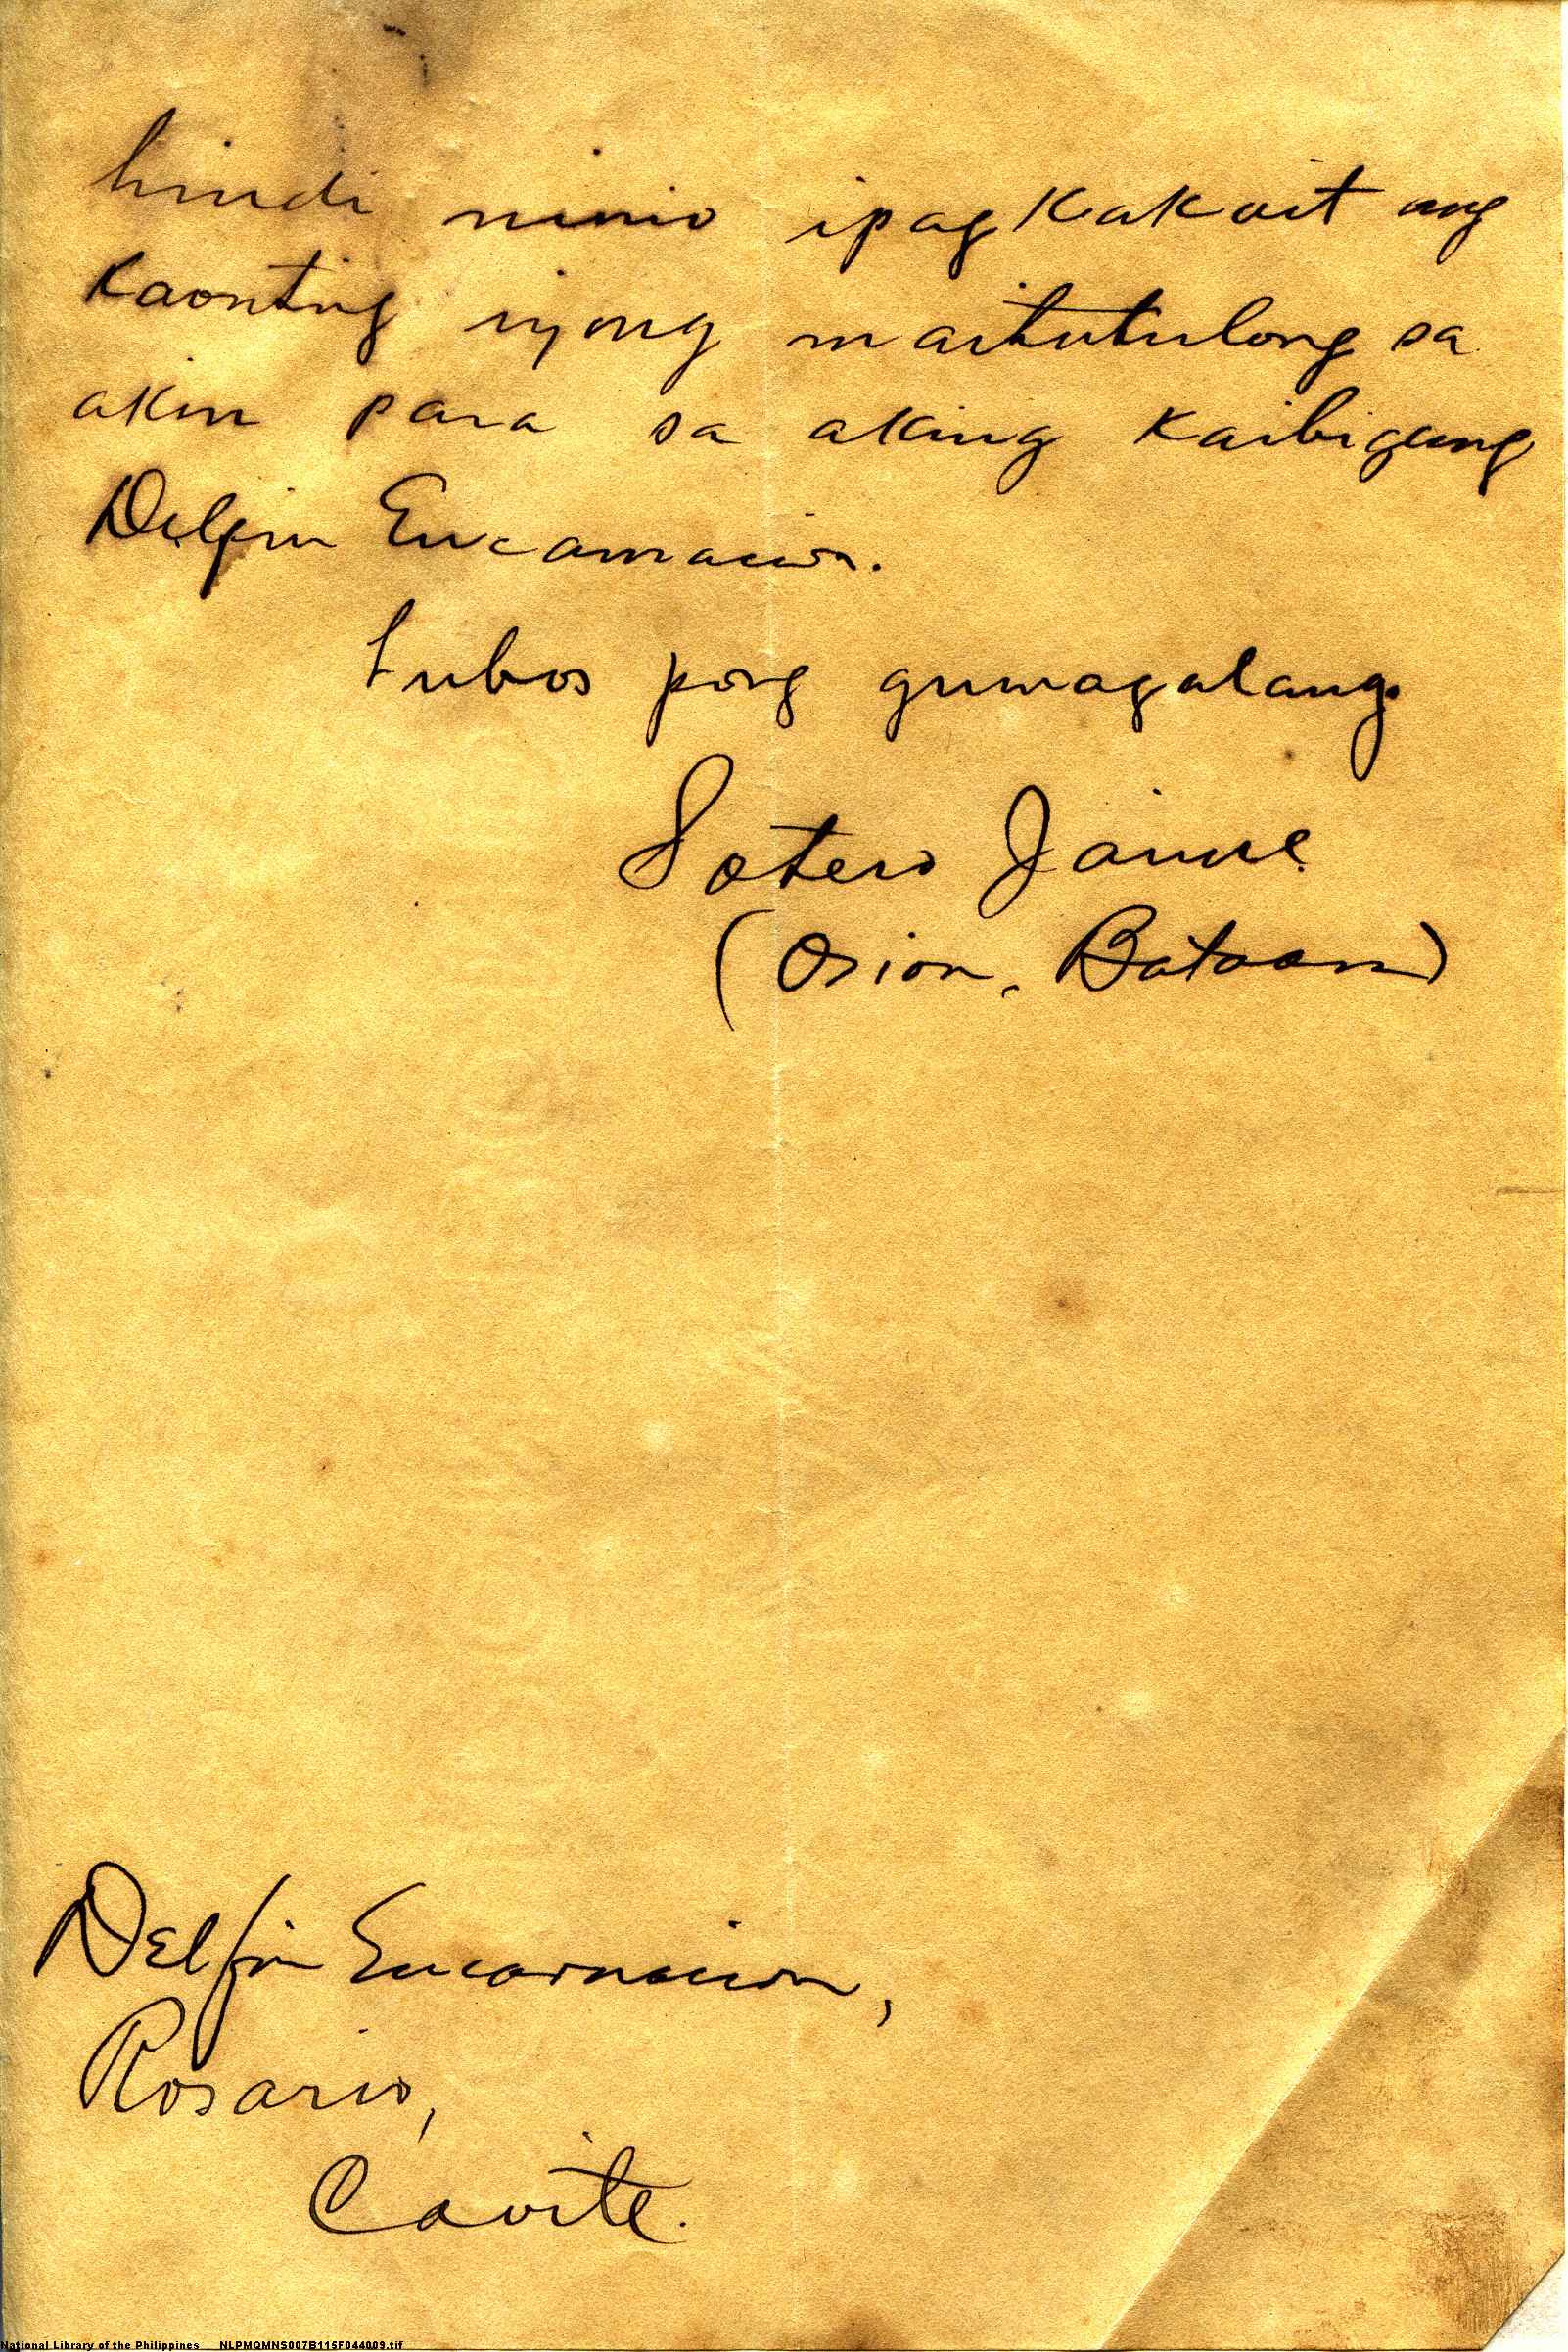 hindi ninio ipagkakait ang
kaonting iyong maitutulong sa
akin para sa aking kaibigang
Delfin Encarnacion.
tubos pong gumagalang.
Sotero Jaime.
(Orion, Bataan)
Delfin Encarnacion,
Rosario,
Cavite.
National Library of the Philippines NLPMQMNS007B115F044009.tif